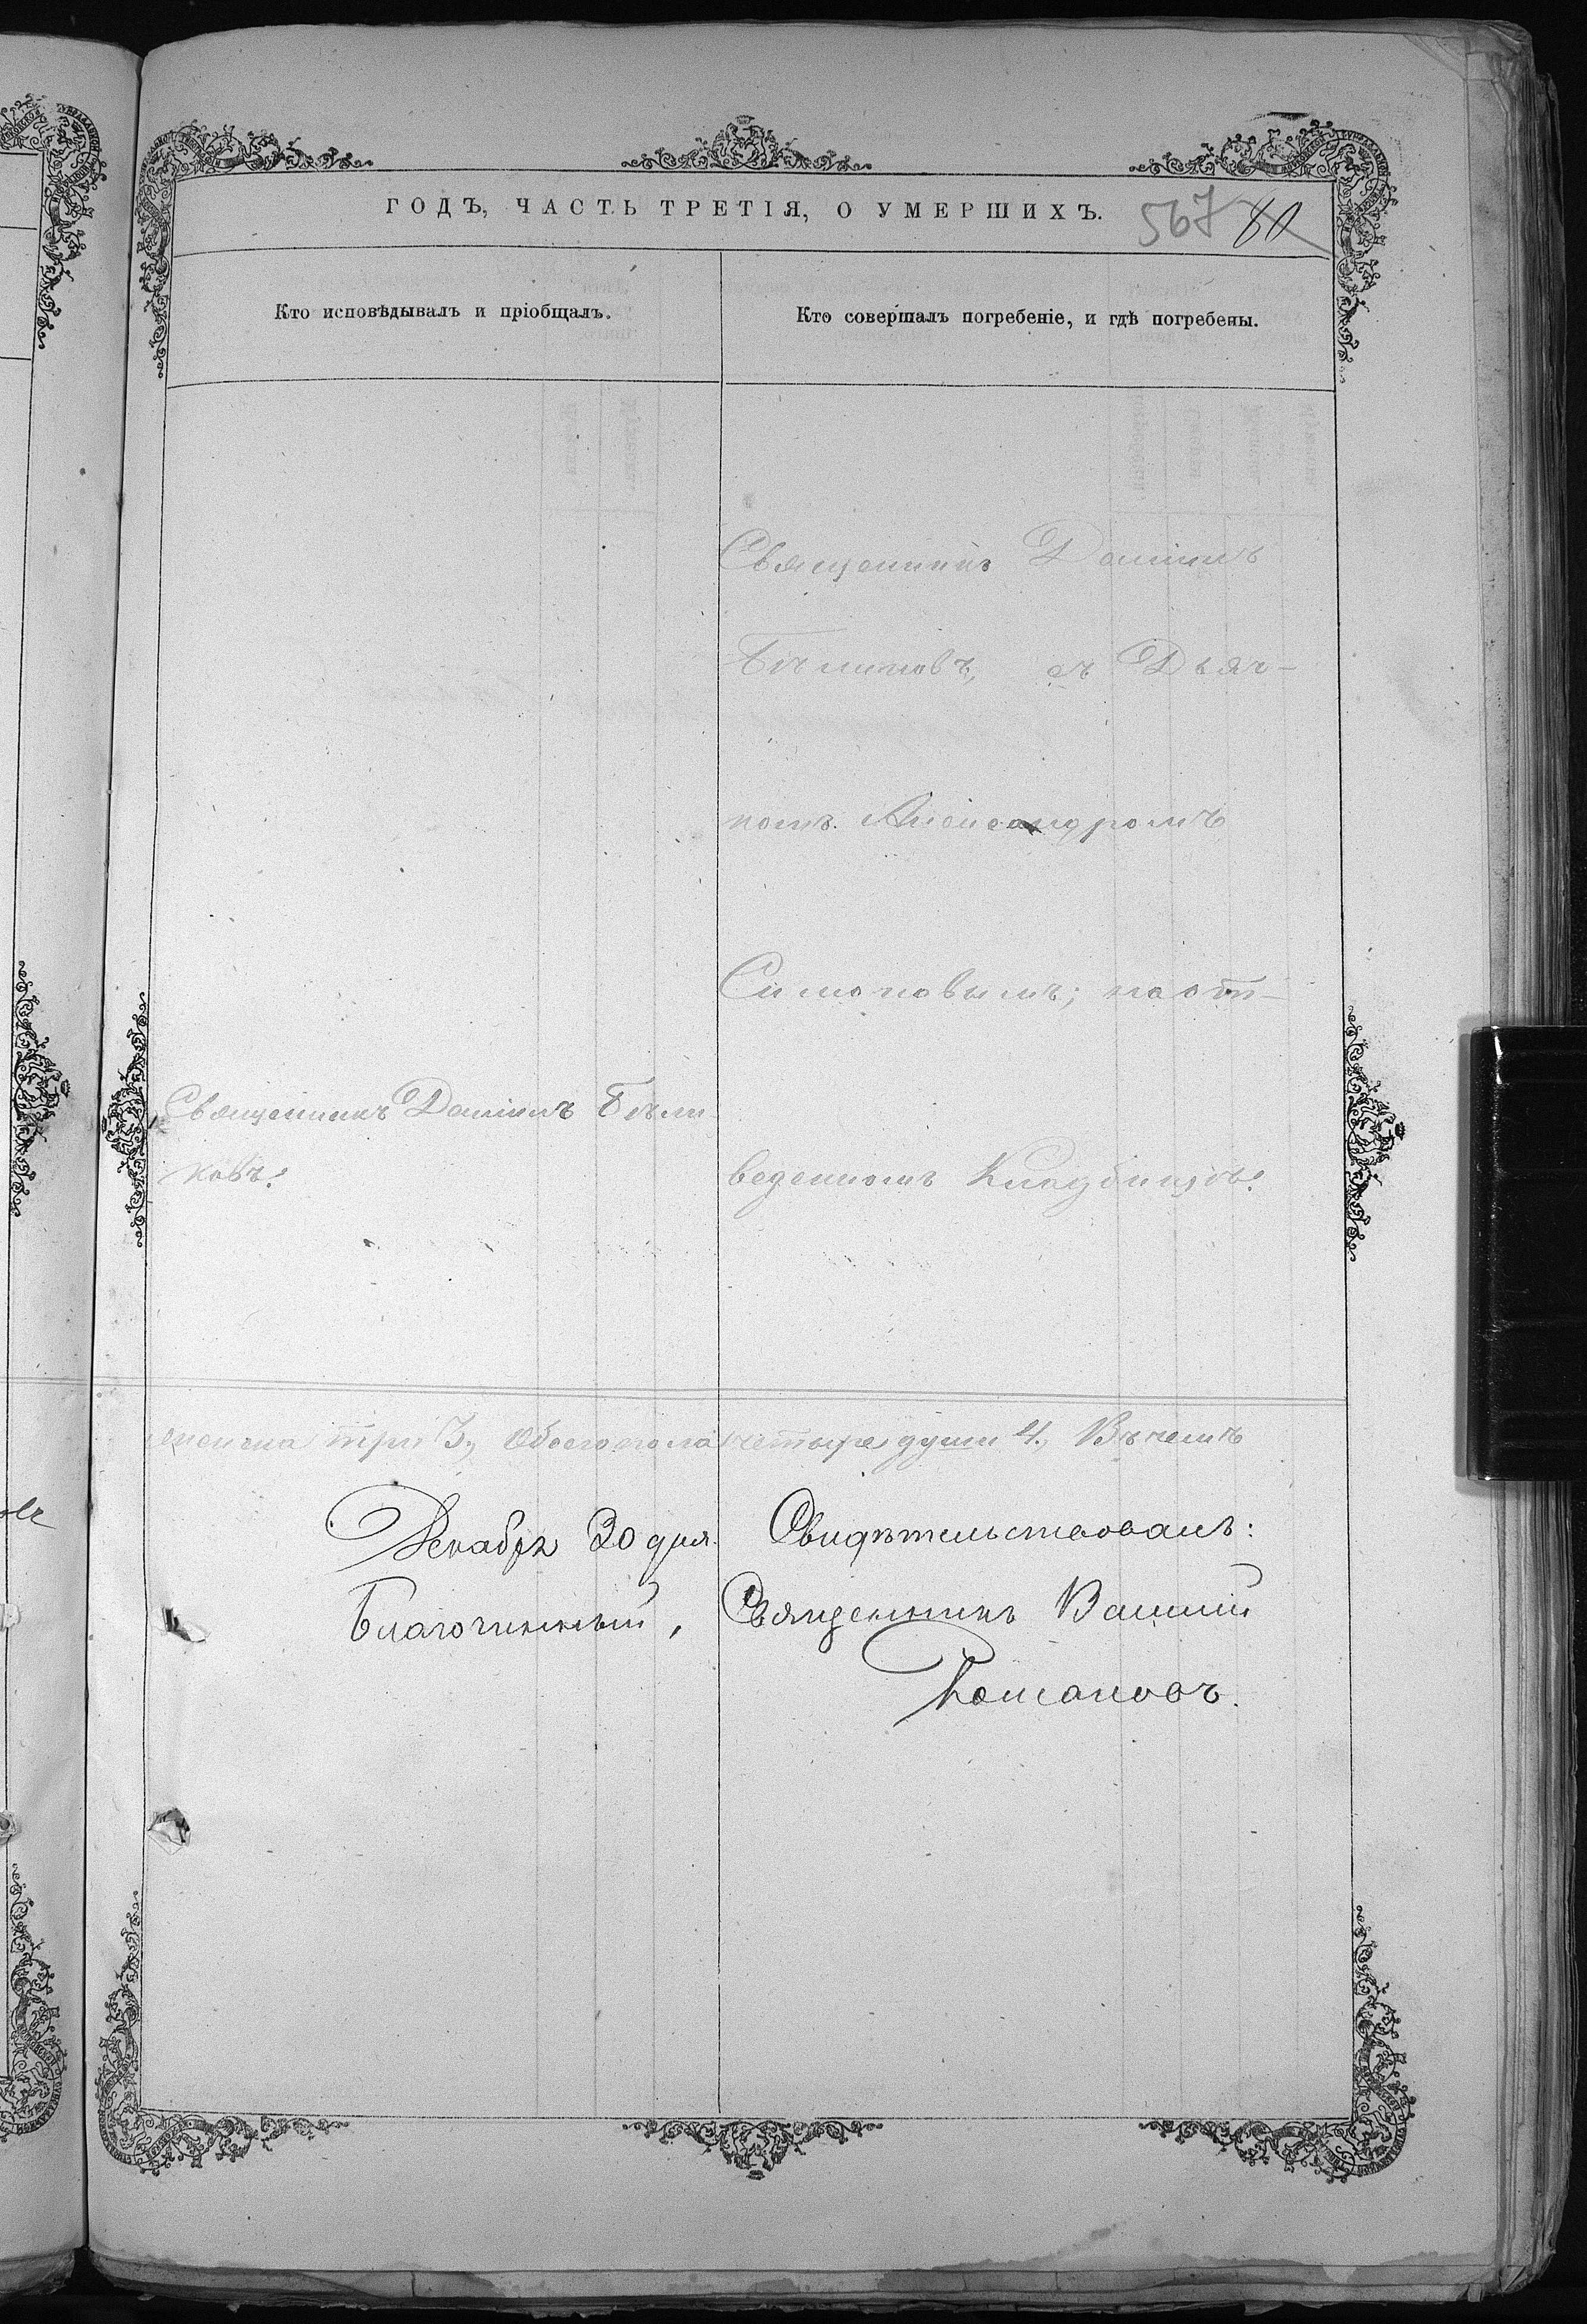 ГОДЪ, ЧАСТЬ ТРЕТІЯ, О УМЕРШИХЪ.
567 80
Кто исповѣдывалъ и пріобщалъ.
Кто совершалъ погребеніе, и гдѣ погребены.
Священникъ Даніилъ
Бѣликовъ, съ Дьяч-
комъ Александромъ
Симоновымъ; на от-
веденномъ Кладбищѣ.
Священникъ Даніилъ Бѣли-
ковъ.
женска три 3, Обоего пола четыре души 4. Въ чемъ
Декабря 30 дня. Свидѣтельствовалъ:
Благочинный, Священникъ
Романовъ.